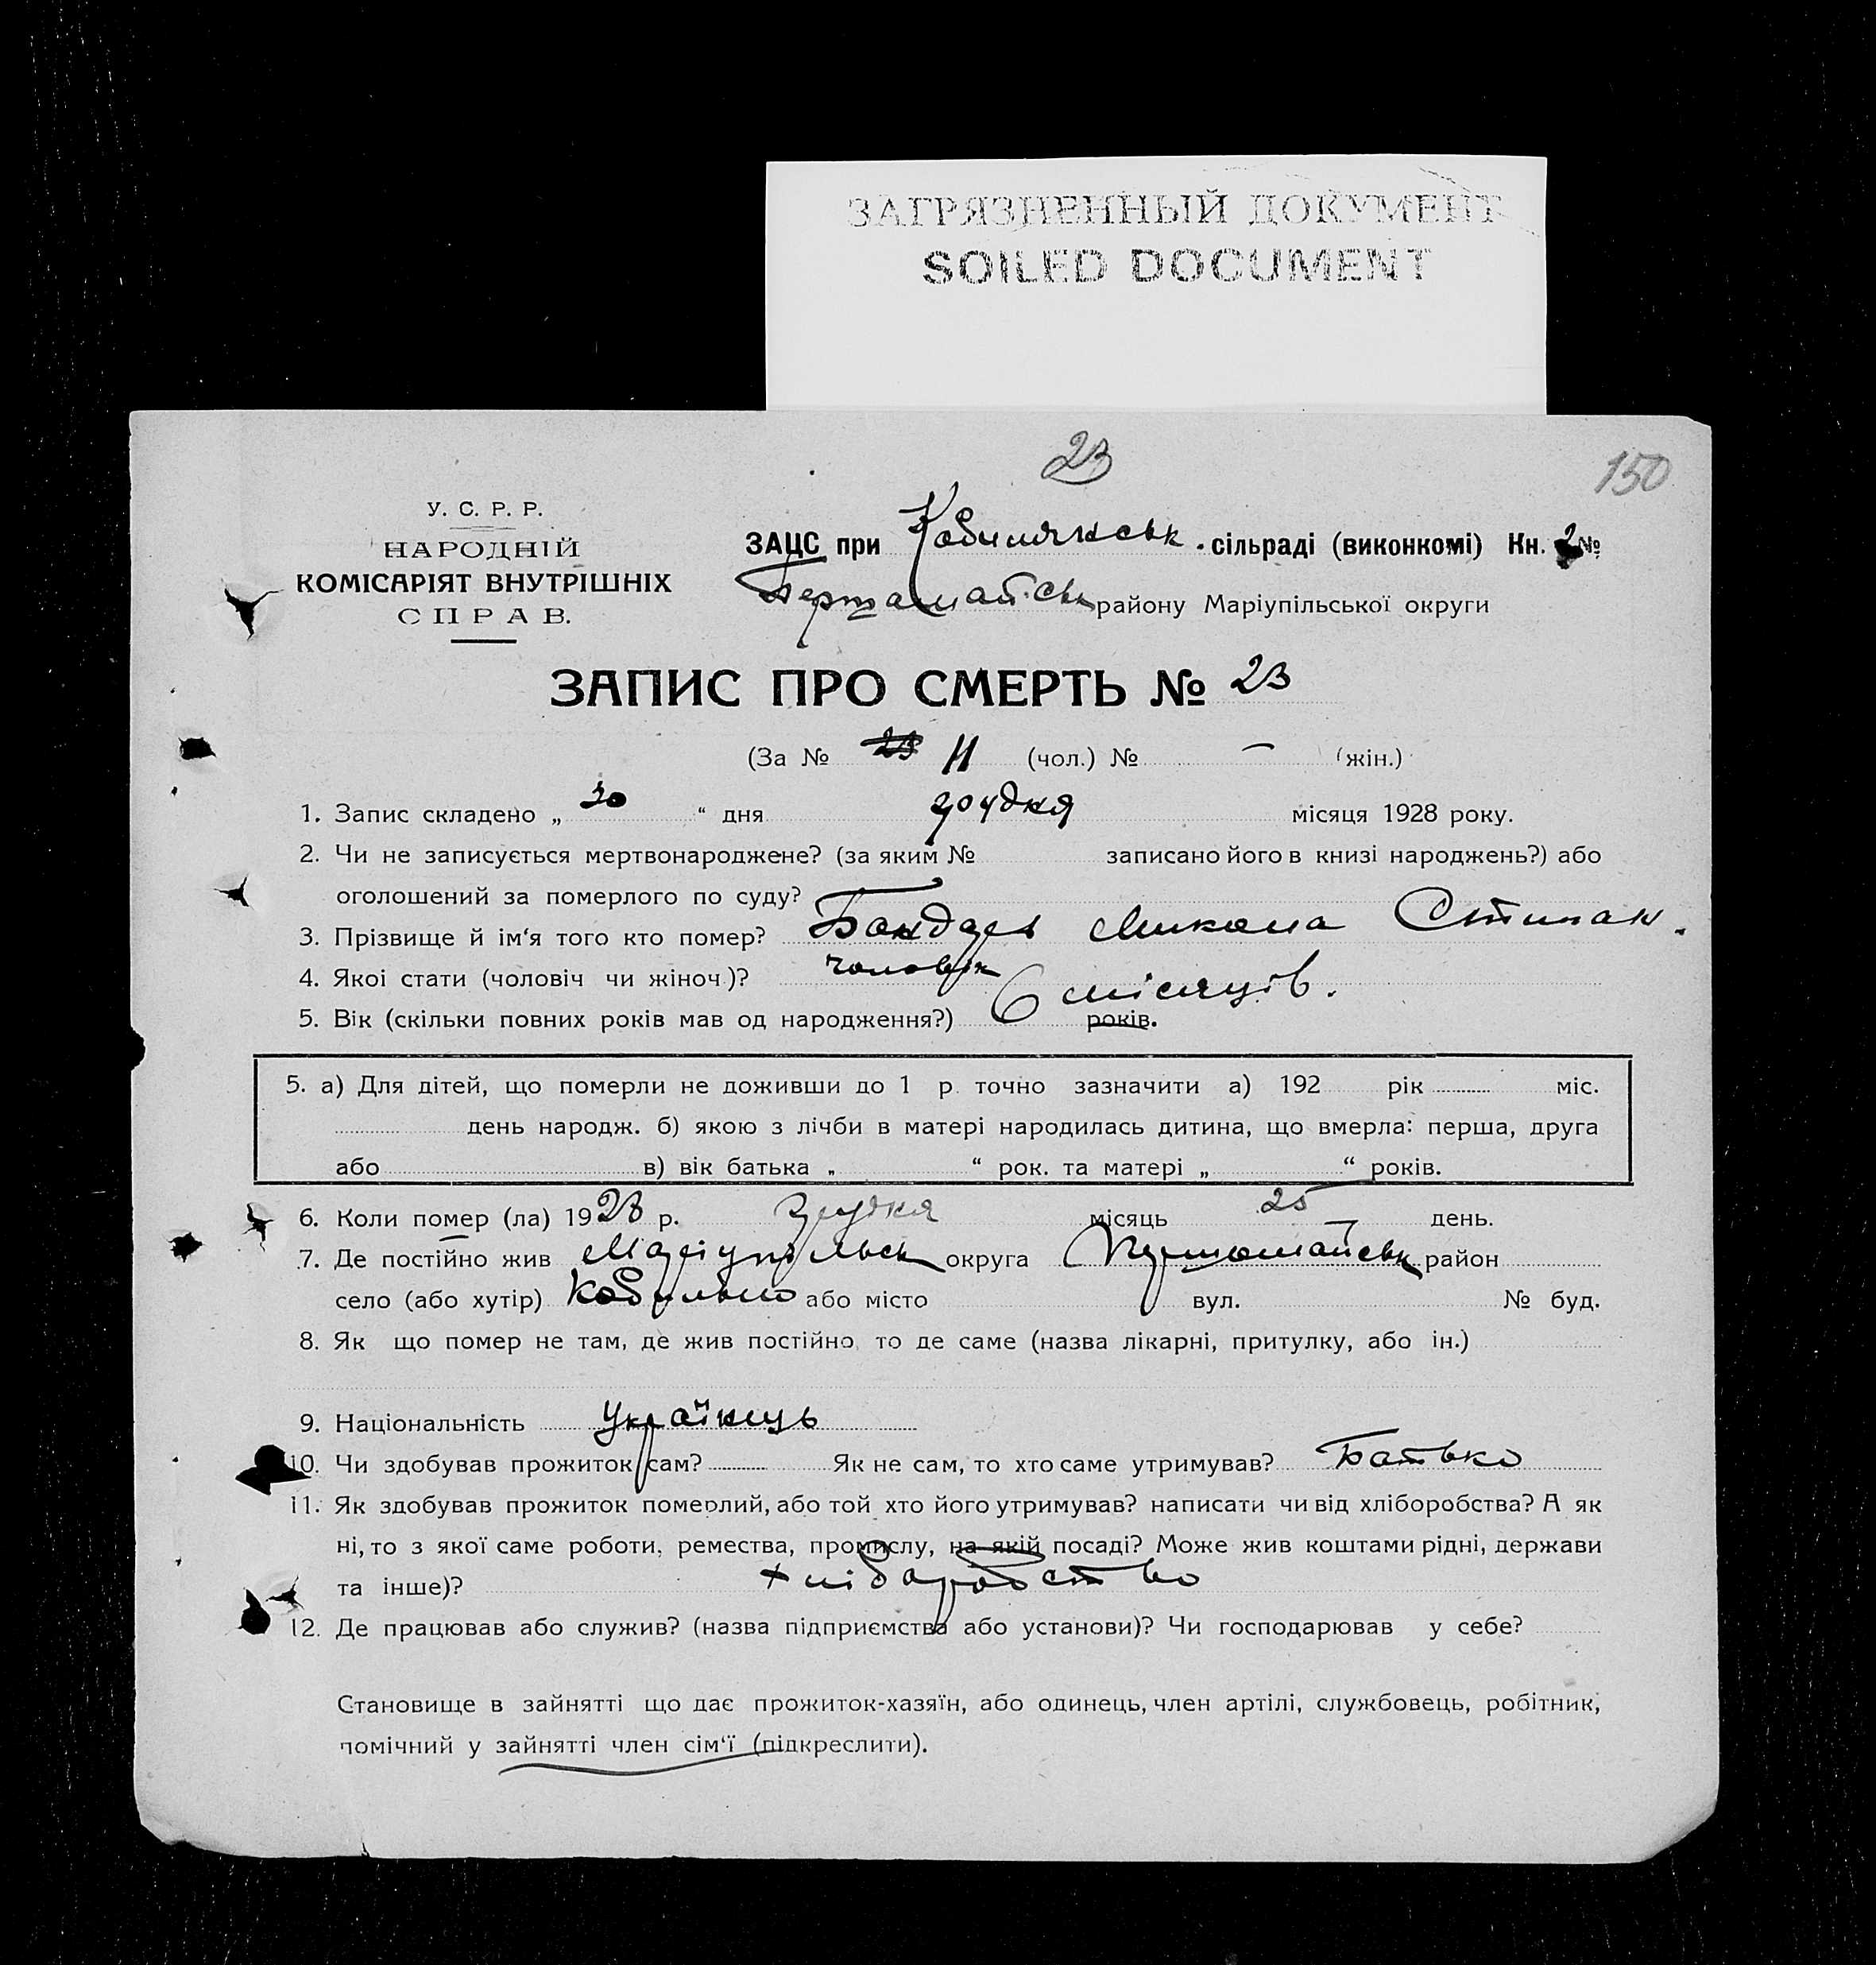 ЗАГРЯЗНЕННЫЙ ДОКУМЕНТ
SOILED DOCUMENT
23
150
У. С. Р. Р.
НАРОДНІЙ
КОМІСАРІЯТ ВНУТРІШНІХ
СПРАВ.
ЗАЦС при Кобилякськ. сільраді (виконкомі) Кн. 2 №
району Маріупільської округи
ЗАПИС ПРО СМЕРТЬ № 23
(За № 23 11 (чол.) № — (жін.)
1. Запис складено „ 30 “ дня грудня місяця 1928 року.
2. Чи не записується мертвонароджене? (за яким № записано його в книзі народжень?) або
оголошений за померлого по суду?
3. Прізвище й ім‘я того кто помер? Бондарь Микола Стипан.
4. Якоі стати (чоловіч чи жіноч.)? чоловік
5. Вік (скільки повних років мав од народження?) 6 місяців. років.
5. а) Для дітей, що померли не доживши до 1 р. точно зазначити а) 192 рік міс.
день народж. б) якою з лічби в матері народилась дитина, що вмерла: перша, друга
або в) вік батька „ “ рок. та матері „ “ років.
6. Коли помер (ла) 1928 р. грудня місяць 25 день.
7. Де постійно жив Маріупільськ округа район
село (або хутір) або місто вул. № буд.
8. Як що помер не там, де жив постійно, то де саме (назва лікарні, притулку, або ін.)
9. Національність Українець
10. Чи здобував прожиток сам? Як не сам, то хто саме утримував? Батько
11. Як здобував прожиток померлий, або той хто його утримував? написати чи від хліборобства? А як
ні, то з якої саме роботи, ремества, промислу, на якій посаді? Може жив коштами рідні, держави
та інше)? хліборобство
12. Де працював або служив? (назва підприємства або установи)? Чи господарював у себе?
Становище в зайнятті що дає прожиток-хазяїн, або одинець, член артілі, службовець, робітник,
помічний у зайнятті член сім‘ї (підкреслити).